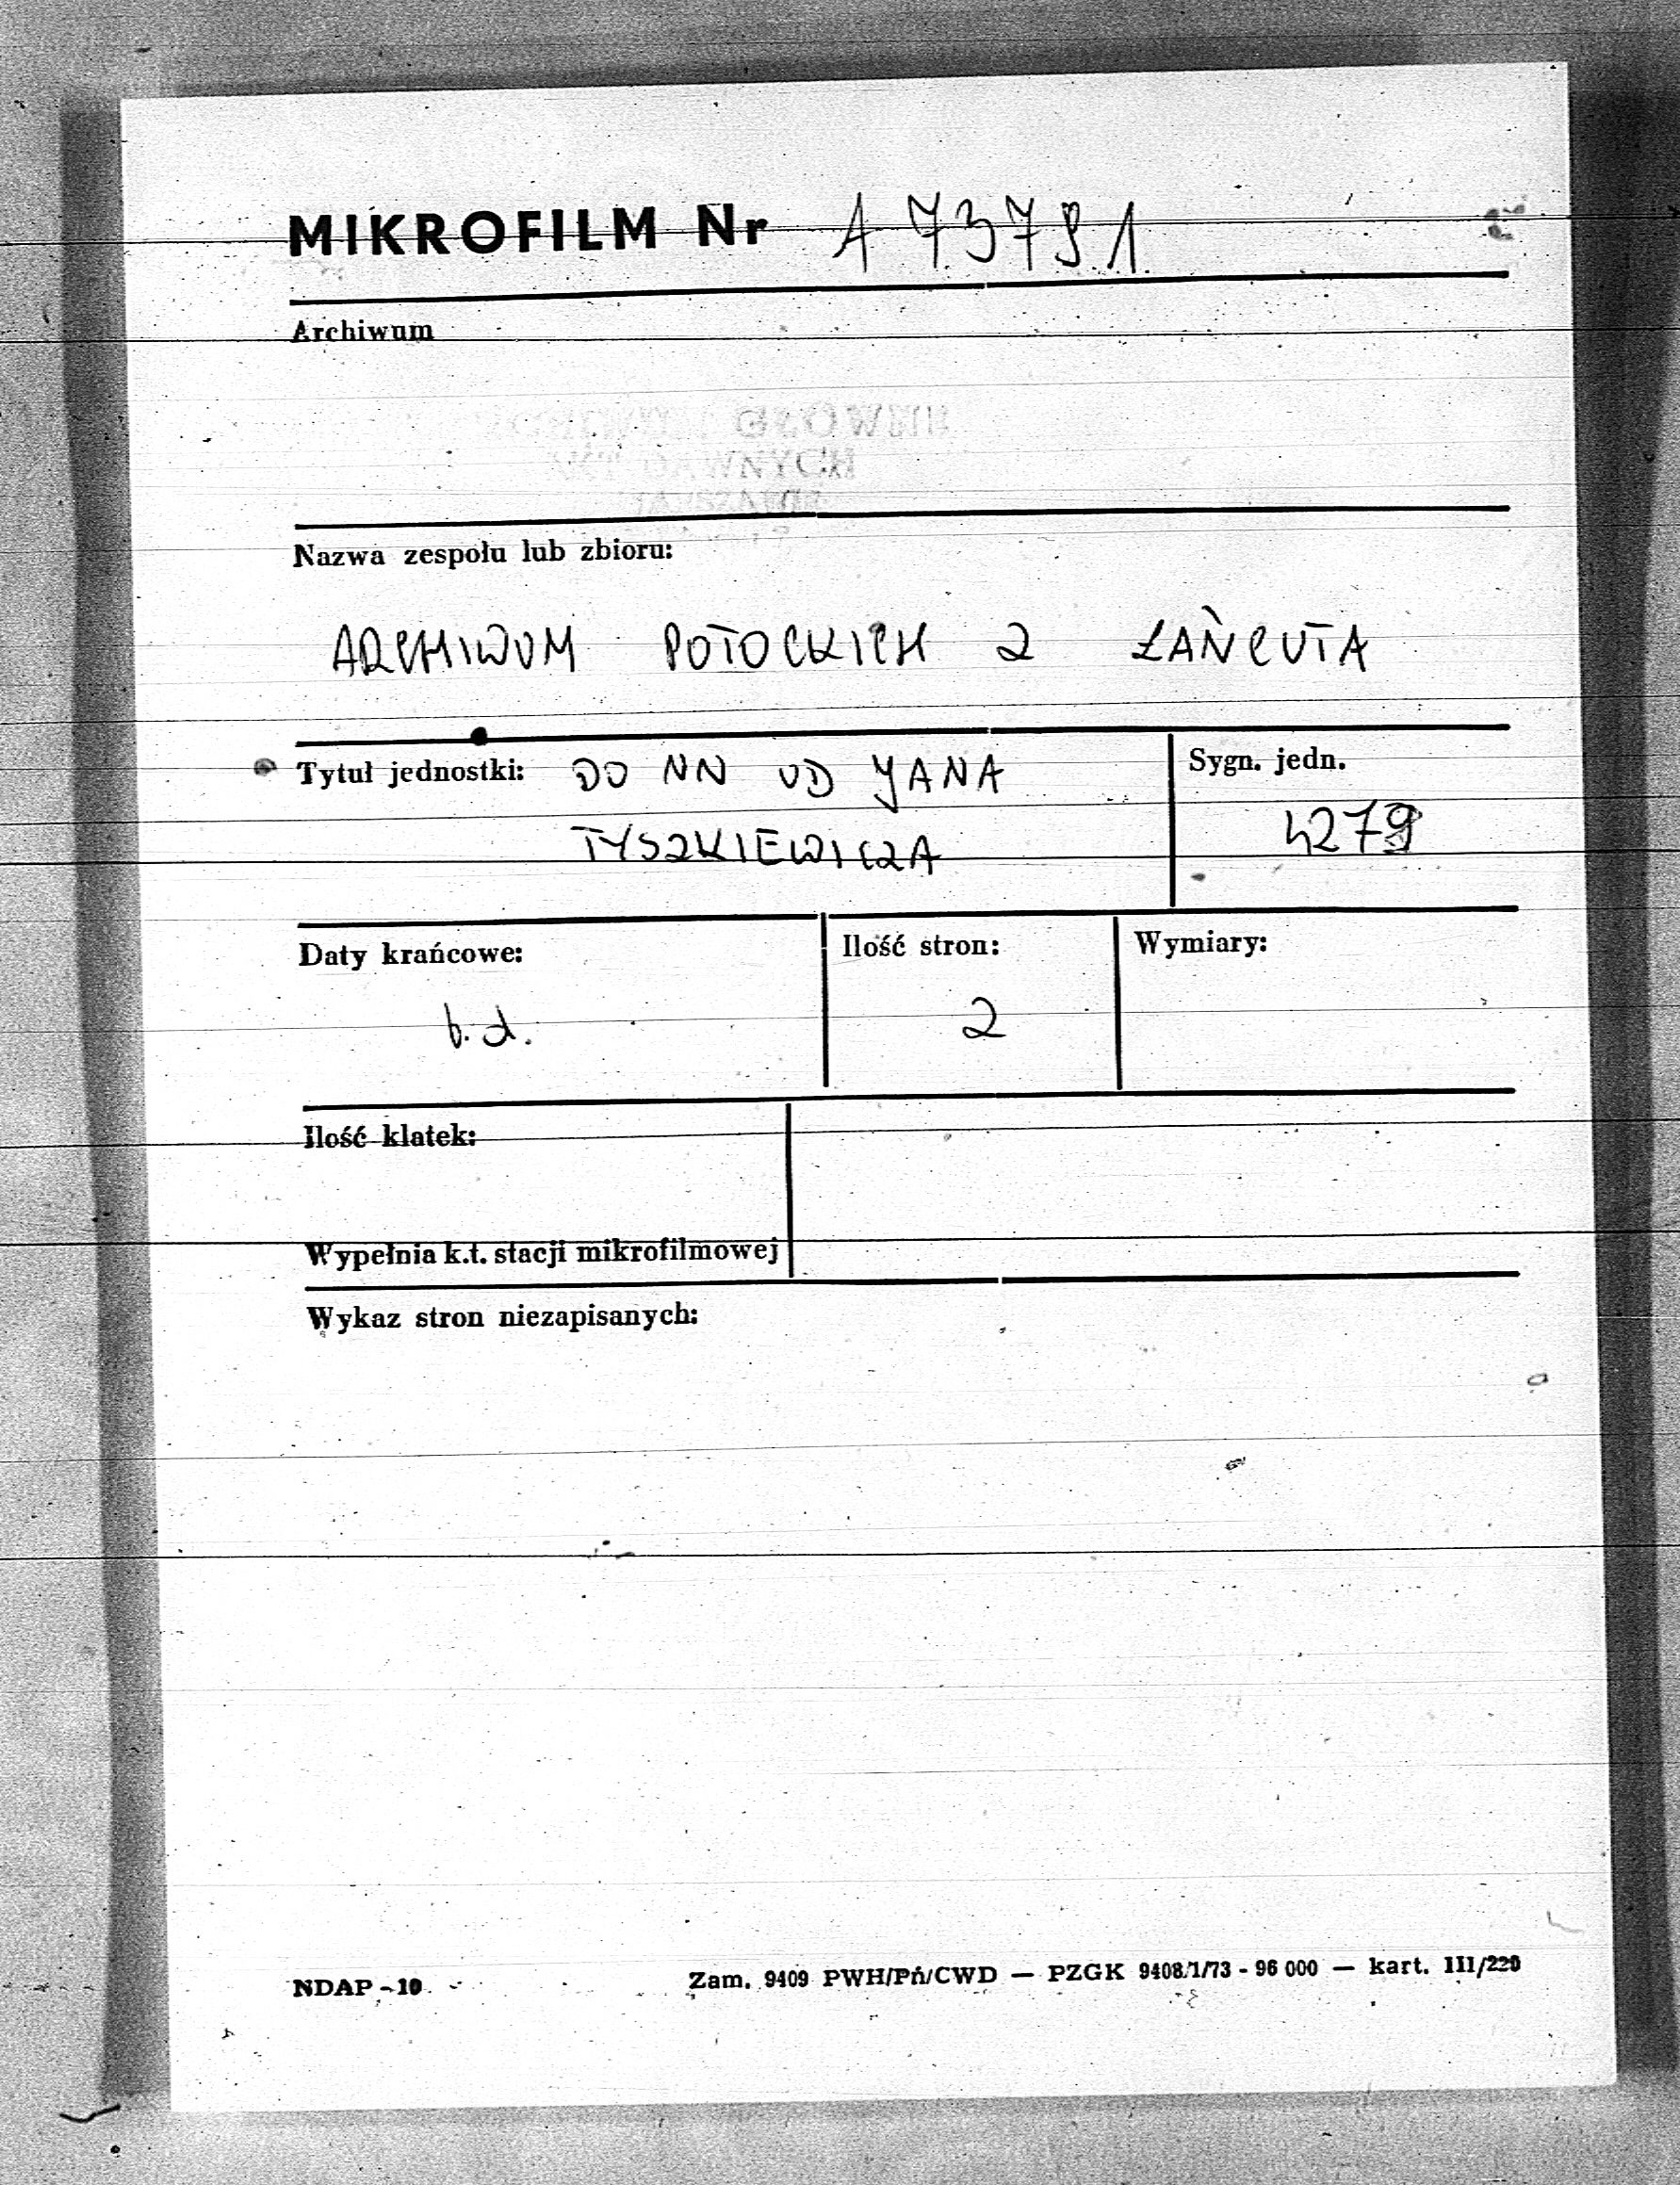 MIKROFILM Nr A 73791
Archiwum
GŁÓWNE
AKT DAWNYCH
Nazwa zespołu lub zbioru:
ARCHIWUM POTOCKICH Z ŁAŃCUTA
Tytuł jednostki: DO NN OD JANA
TYSZKIEWICZA
Sygn. jedn.
4279
Daty krańcowe:
b.d.
Ilość stron:
2
Wymiary:
Ilość klatek:
Wypełnia k.t. stacji mikrofilmowej
Wykaz stron niezapisanych:
NDAP - 10
Zam. 9409 PWH/Pń/CWD — PZGK 9408/1/73 - 96 000 — kart. III/220